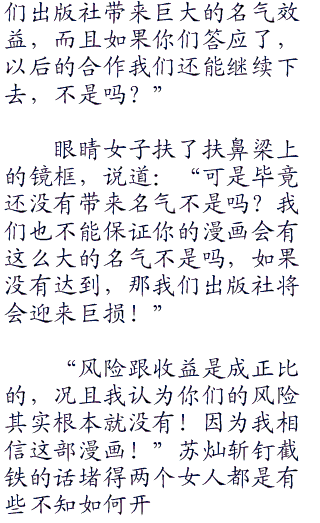 们出版社带来巨大的名气效
益，而且如果你们答应了，
以后的合作我们还能继续下
去，不是吗？”
眼睛女子扶了扶鼻梁上
的镜框，说道：“可是毕竟
还没有带来名气不是吗？我
们也不能保证你的漫画会有
这么大的名气不是吗，如果
没有达到，那我们出版社将
会迎来巨损！”
“风险跟收益是成正比
的，况且我认为你们的风险
其实根本就没有！因为我相
信这部漫画！”苏灿斩钉截
铁的话堵得两个女人都是有
些不知如何开